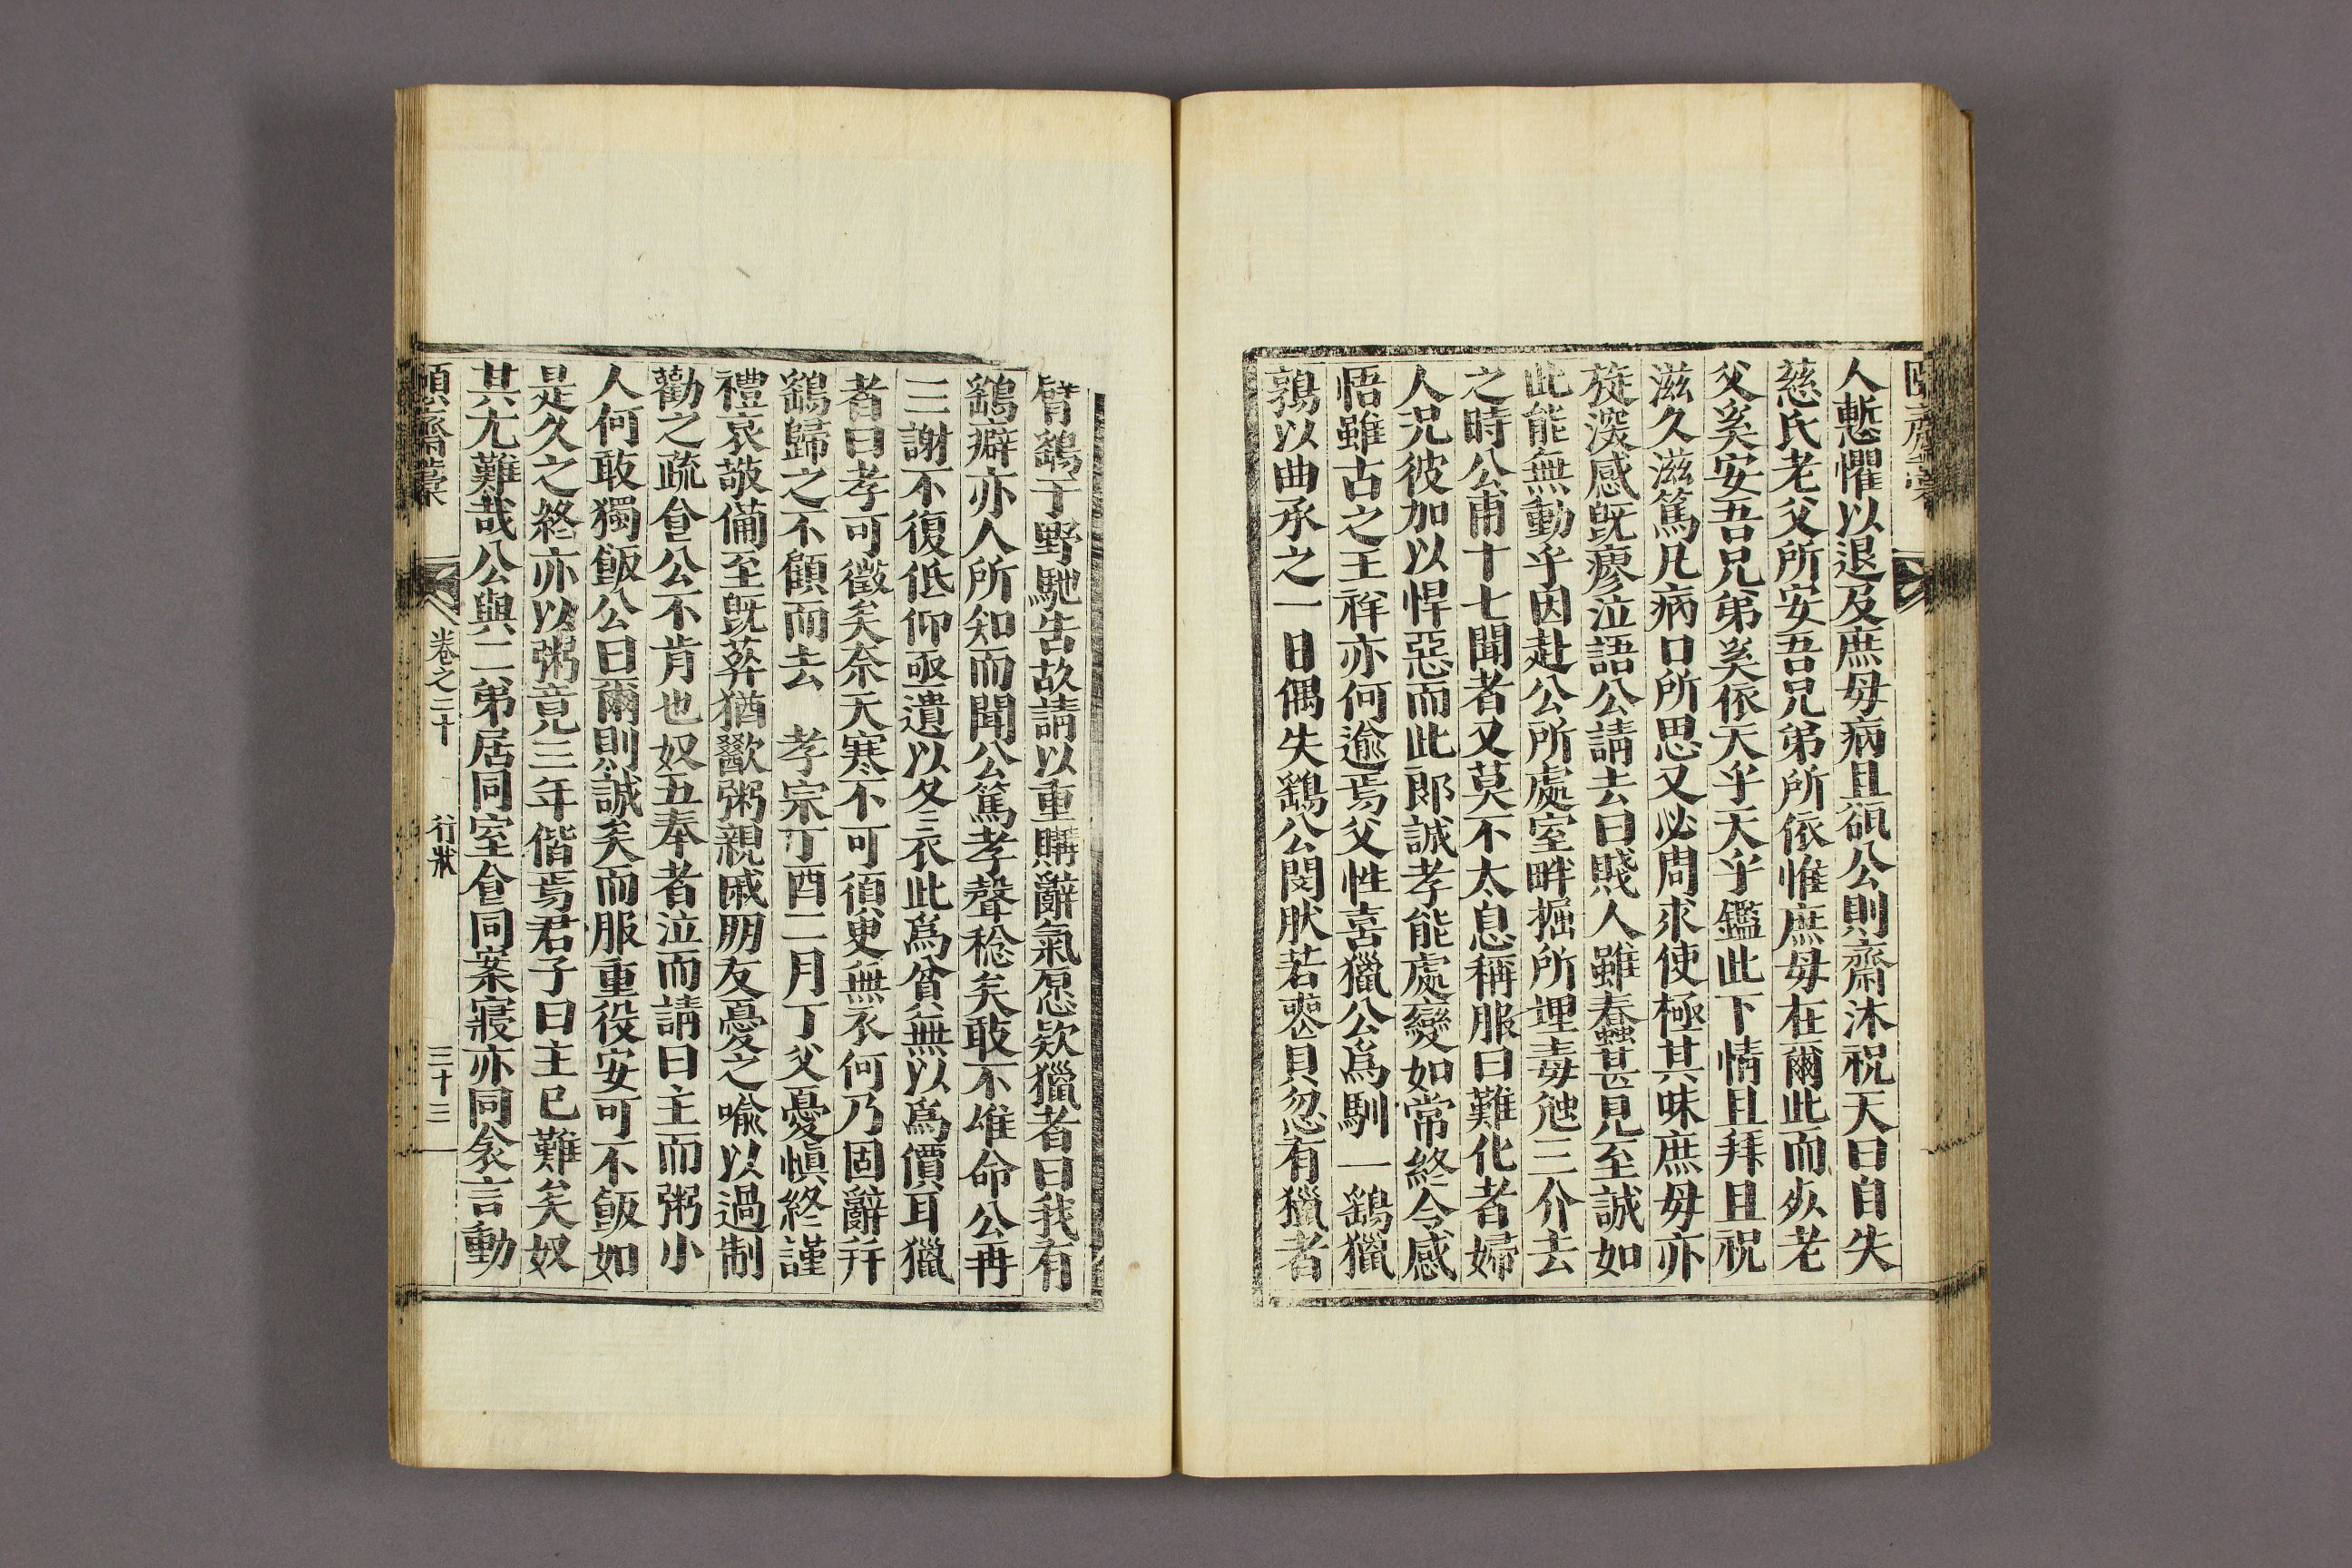 人慙懼以退及庶母病且瓻公則齋沐祝天曰自失
慈氏老父所安吾兄弟所依惟庶母在爾此而㱙老
父奚安吾兄弟奚依天乎天乎鑑此下情且拜且祝
滋久滋篤凡病口所思又必周求使極其味庶母亦
旋深感旣瘳泣語公請去曰賤人雖蠢甚見至誠如
此能無動乎因赴公所處室畔掘所埋毒虵三介去
之時公甫十七聞者又莫不太息稱服曰難化者婦
人况彼加以悍惡而此郎誠孝能處變如常終令感
悟雖古之王祥亦何逾焉父性喜獵公爲馴一鷂獵
鶉以曲承之一日偶失鷂公閔肰若喪貝忽有獵者
臂鷂于野馳告故請以重購辭氣愿欵獵者曰我有
鷂癖亦人所知而聞公篤孝聲稔矣敢不雄命公再
三謝不復低仰亟遺以冬衣此爲貧無以爲價耳獵
者曰孝可徵矣奈天寒不可徇叟無衣何乃固辭幷
鷂歸之不顧而去 孝宗丁酉二月丁父憂愼終謹
禮哀敬備至旣葬猶歠粥親戚朋友憂之喩以過制
勸之疏食公不肯也奴五奉者泣而請曰主而粥小
人何敢獨飯公曰爾則誠矣而服重役安可不飯如
是久之終亦以粥竟三年偕焉君子曰主已難矣奴
其尤難哉公與二弟居同室食同案寢亦同衾言動
卷之二十 行狀 三十三